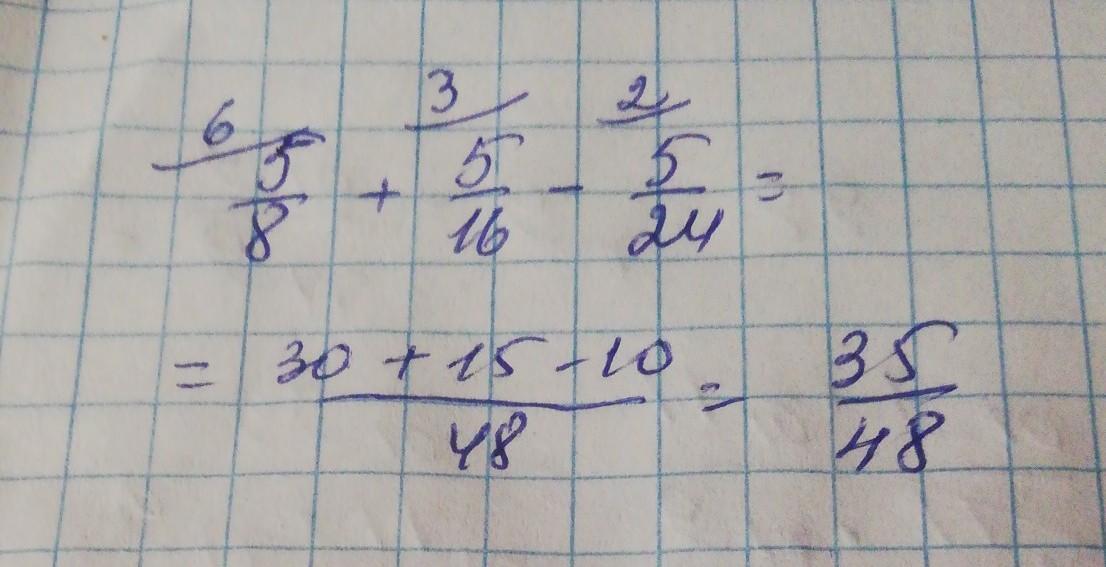 6 3 2
5/8 + 5/16 - 5/24 =
= (30 + 15 - 10)/48 = 35/48